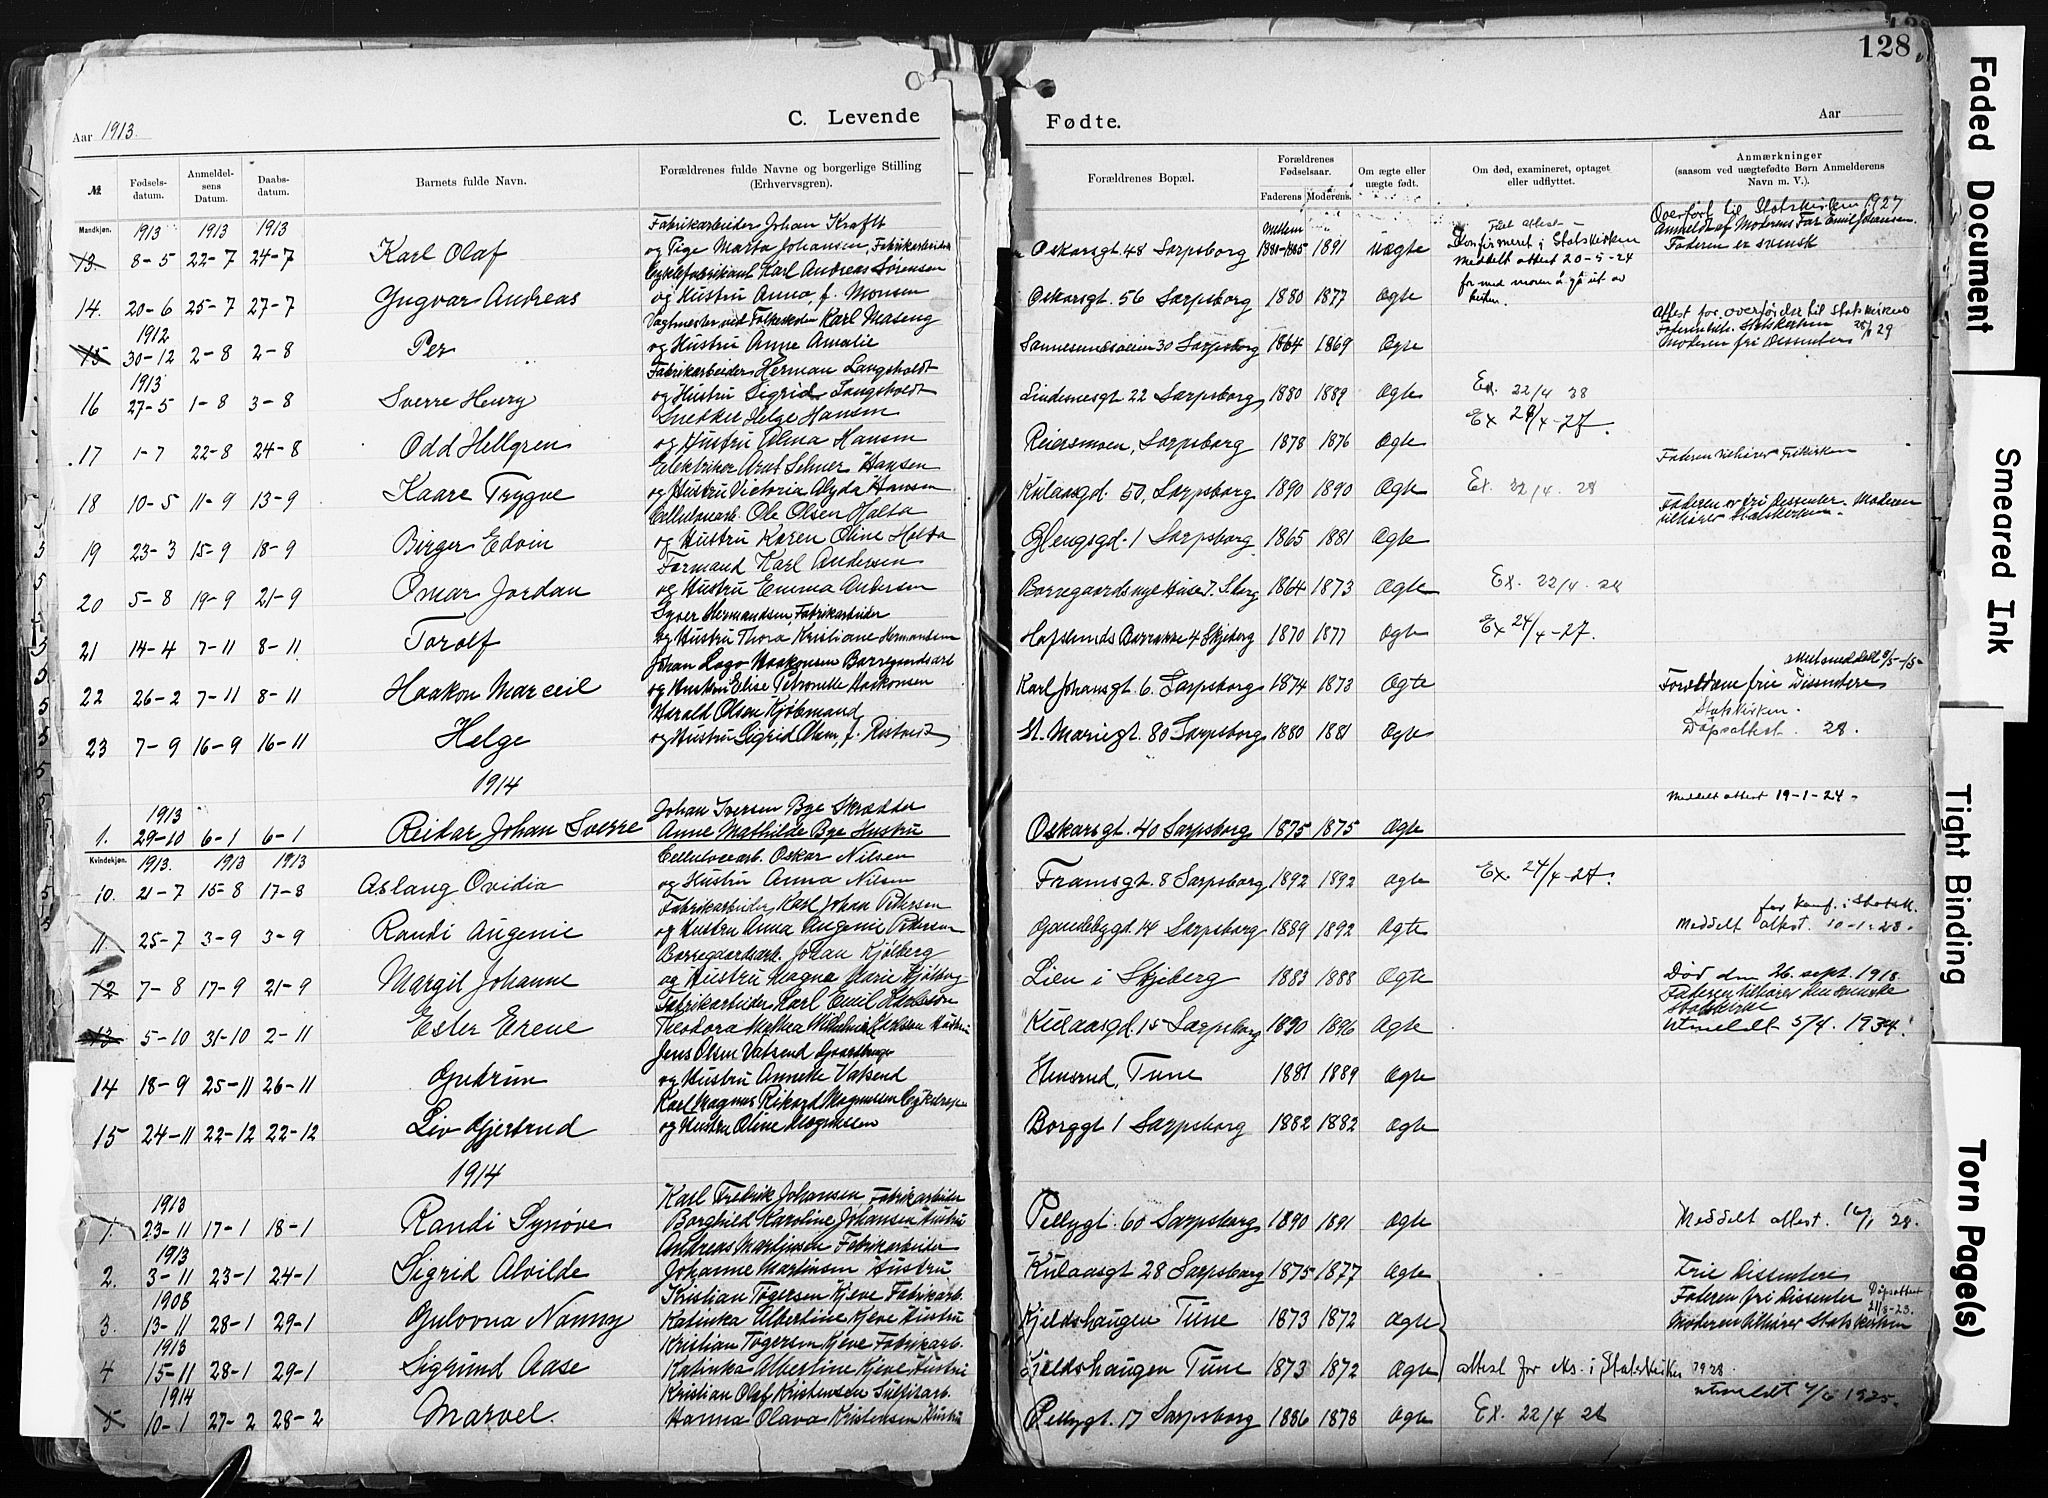 128
C. Levende Fødte.
Aar 1913. Aar
№ Fødsels-datum. Anmeldel-sens Datum. Daabs-datum. Barnets fulde Navn. Forældrenes fulde Navne og borgerlige Stilling (Erhvervsgren). Forældrenes Bopæl. Forældrenes Fødselsaar. Faderens Moderens. Om ægte eller uægte født. Om død, examineret, optaget eller udflyttet. Anmærkninger (saasom ved uægtefødte Børn Anmelderens Navn m. V.).
Mandkjøn. 1913 1913 1913 Fabrikarbeider Johan Krafft Mellem Overført til Statskirken 1927
13. 8-5 22-7 24-7 Karl Olaf og Pige Marta Johansen, Fabrikarbeider Oskarsgt. 48 Sarpsborg 1880-1885 1891 uægte Konfirmeret i Statskirken Anmeldt af Moderens Far Emil Johansen.
Meddelt attest 20-5-24 Faderen er svensk
Cyklefabrikant Karl Andreas Sørensen
14. 20-6 25-7 27-7 Yngvar Andreas og Hustru Anna, f. Monsen Oskarsgt. 56 Sarpsborg 1880 1877 Ægte
1912 Vagtmester ved Karl Maseng Attest for overførelse til Statskirken
15 30-12 2-8 2-8 Per og Hustru Anne Amalie 30 Sarpsborg 1864 1869 Ægte Moderen fri Dissenter
1913 Fabrikarbeider Herman Langholdt
16 27-5 1-8 3-8 Sverre Henry og Hustru Sigrid Langholdt Lindesnesgt 22 Sarpsborg 1880 1889 Ægte Ex. 22/4 28
Snekker Helge Hansen
17 1-7 22-8 24-8 Odd Hellgren og Hustru Alma Hansen Reiersmoen, Sarpsborg 1878 1876 Ægte Ex 24/4-27.
Elektriker Arnt Selmer Hansen Faderen tilhører Frikirken
18 10-5 11-9 13-9 Kaare Trygve og Hustru Victoria Alyda Hansen Kulaasgd. 50, Sarpsborg 1890 1890 Ægte Ex. 22/4. 28
Cellulosearb. Ole Olsen Holta Faderen er fri Dissenter. Moderen
19 23-3 15-9 18-9 Birger Edvin og Hustru Karen Oline Holta Glengsgd. 1 Sarpsborg 1865 1881 Ægte tilhører Statskirken.
Formand Karl Andersen
20 5-8 19-9 21-9 Omar Jordan og Hustru Emma Andersen Borregaards nye Huse 7. Sborg 1864 1873 Ægte Ex. 22/4. 28
Syver Hermandsen, Fabrikarbeider
21 14-4 7-11 8-11 Torolf og Hustru Thora Kristiane Hermansen Hafslunds Barrakke 4 Skjeberg 1870 1877 Ægte Ex 24/4-27.
Johan Lago Haakonsen Borregaardsarb
22 26-2 7-11 8-11 Haakon Marceil og Hustru Elise Petronelle Haakonsen Karl Johansgt. 6. Sarpsborg 1874 1873 Ægte Forældrene frie Dissentere
Harald Olsen Kjøbmand Statskirken.
23 7-9 16-9 16-11 Helge og Hustru Sigrid Olsen, f. St. Mariegt. 80 Sarpsborg 1880 1881 Ægte Dåpsattest 28.
1914
1913 Johan Iversen Bye Skrædder Meddelt attest 19-1-24.
1. 29-10 6-1 6-1 Reidar Johan Sverre Anne Mathilde Bye Hustru Oskarsgt. 40 Sarpsborg 1875 1875 Ægte
Kvindekjøn. 1913. 1913 1913 Cellulosearb. Oskar Nilsen
10. 21-7 15-8 17-8 Aslaug Ovidia og Hustru Anna Nilsen Framsgt. 8 Sarpsborg 1892 1892 Ægte Ex. 24/4-27.
Fabrikarbeider Karl Johan Pettersen for konf. i Statsk.
11 25-7 3-9 3-9 Randi Augenie og Hustru Anna Augenie Pettersen 14 Sarpsborg 1889 1892 Ægte Meddelt attest. 10-1-28.
Borregaardsarb. Johan Kjölberg
12 7-8 17-9 21-9 Margit Johanne og Hustru Magna Marie Kjölberg Lien i Skjeberg 1883 1888 Ægte Død den 26. sept. 1918.
Fabrikarbeider Karl Emil Karlsson Faderen tilhører den svenske Statskirke
13 5-10 31-10 2-11 Ester Erene Theodora Mathea Karlsen Hustru Kulaasgd 15 Sarpsborg 1890 1896 Ægte Utmeldt 5/4. 1934.
Jens Olsen Vatsend
14 18-9 25-11 26-11 Gudrun og Hustru Annette Vatsend Hensrud, Tune 1881 1889 Ægte
Karl Magnus Rikard Magnussen
15 24-11 22-12 22-12 Liv Gjertrud og Hustru Oline Magnussen Borggt 1 Sarpsborg 1882 1882 Ægte
1914
1913 Karl Fredrik Johansen Fabrikarbeider
1. 23-11 17-1 18-1 Randi Synøve Borghild Karoline Johansen Hustru Pellygt. 60 Sarpsborg 1890 1891 Ægte Meddelt attest. 28.
1913 Andreas Martinsen Fabrikarbeider
2. 3-11 23-1 24-1 Sigrid Alvilde Johanne Martinsen Hustru Kulaasgt 28 Sarpsborg 1875 1877 Ægte Frie Dissentere
1908 Kristian Tøgersen Kjeve Fabrikarb. Faderen fri Dissenter Dåpsattest
3. 13-11 28-1 29-1 Gulovna Nanny Katinka Albertine Kjeve Hustru Kjeldshaugen Tune 1873 1872 Ægte Moderen tilhører Statskirken
1913 Kristian Tøgersen Kjeve Fabrikarb.
4 15-11 28-1 29-1 Sigrund Aase Katinka Albertine Kjeve Hustru Kjeldshaugen Tune 1873 1872 Ægte attest for i Statskirken 1928
1914 Kristian Olaf Kristensen Sulfitarb. utmeldt 1925.
5 10-1 27-2 28-2 Marvel. Hanna Olava Kristensen Hustru Pellygt. 17 Sarpsborg 1886 1878 Ægte Ex. 22/4 28
Faded Document
Smeared Ink
Tight Binding
Torn Page(s)